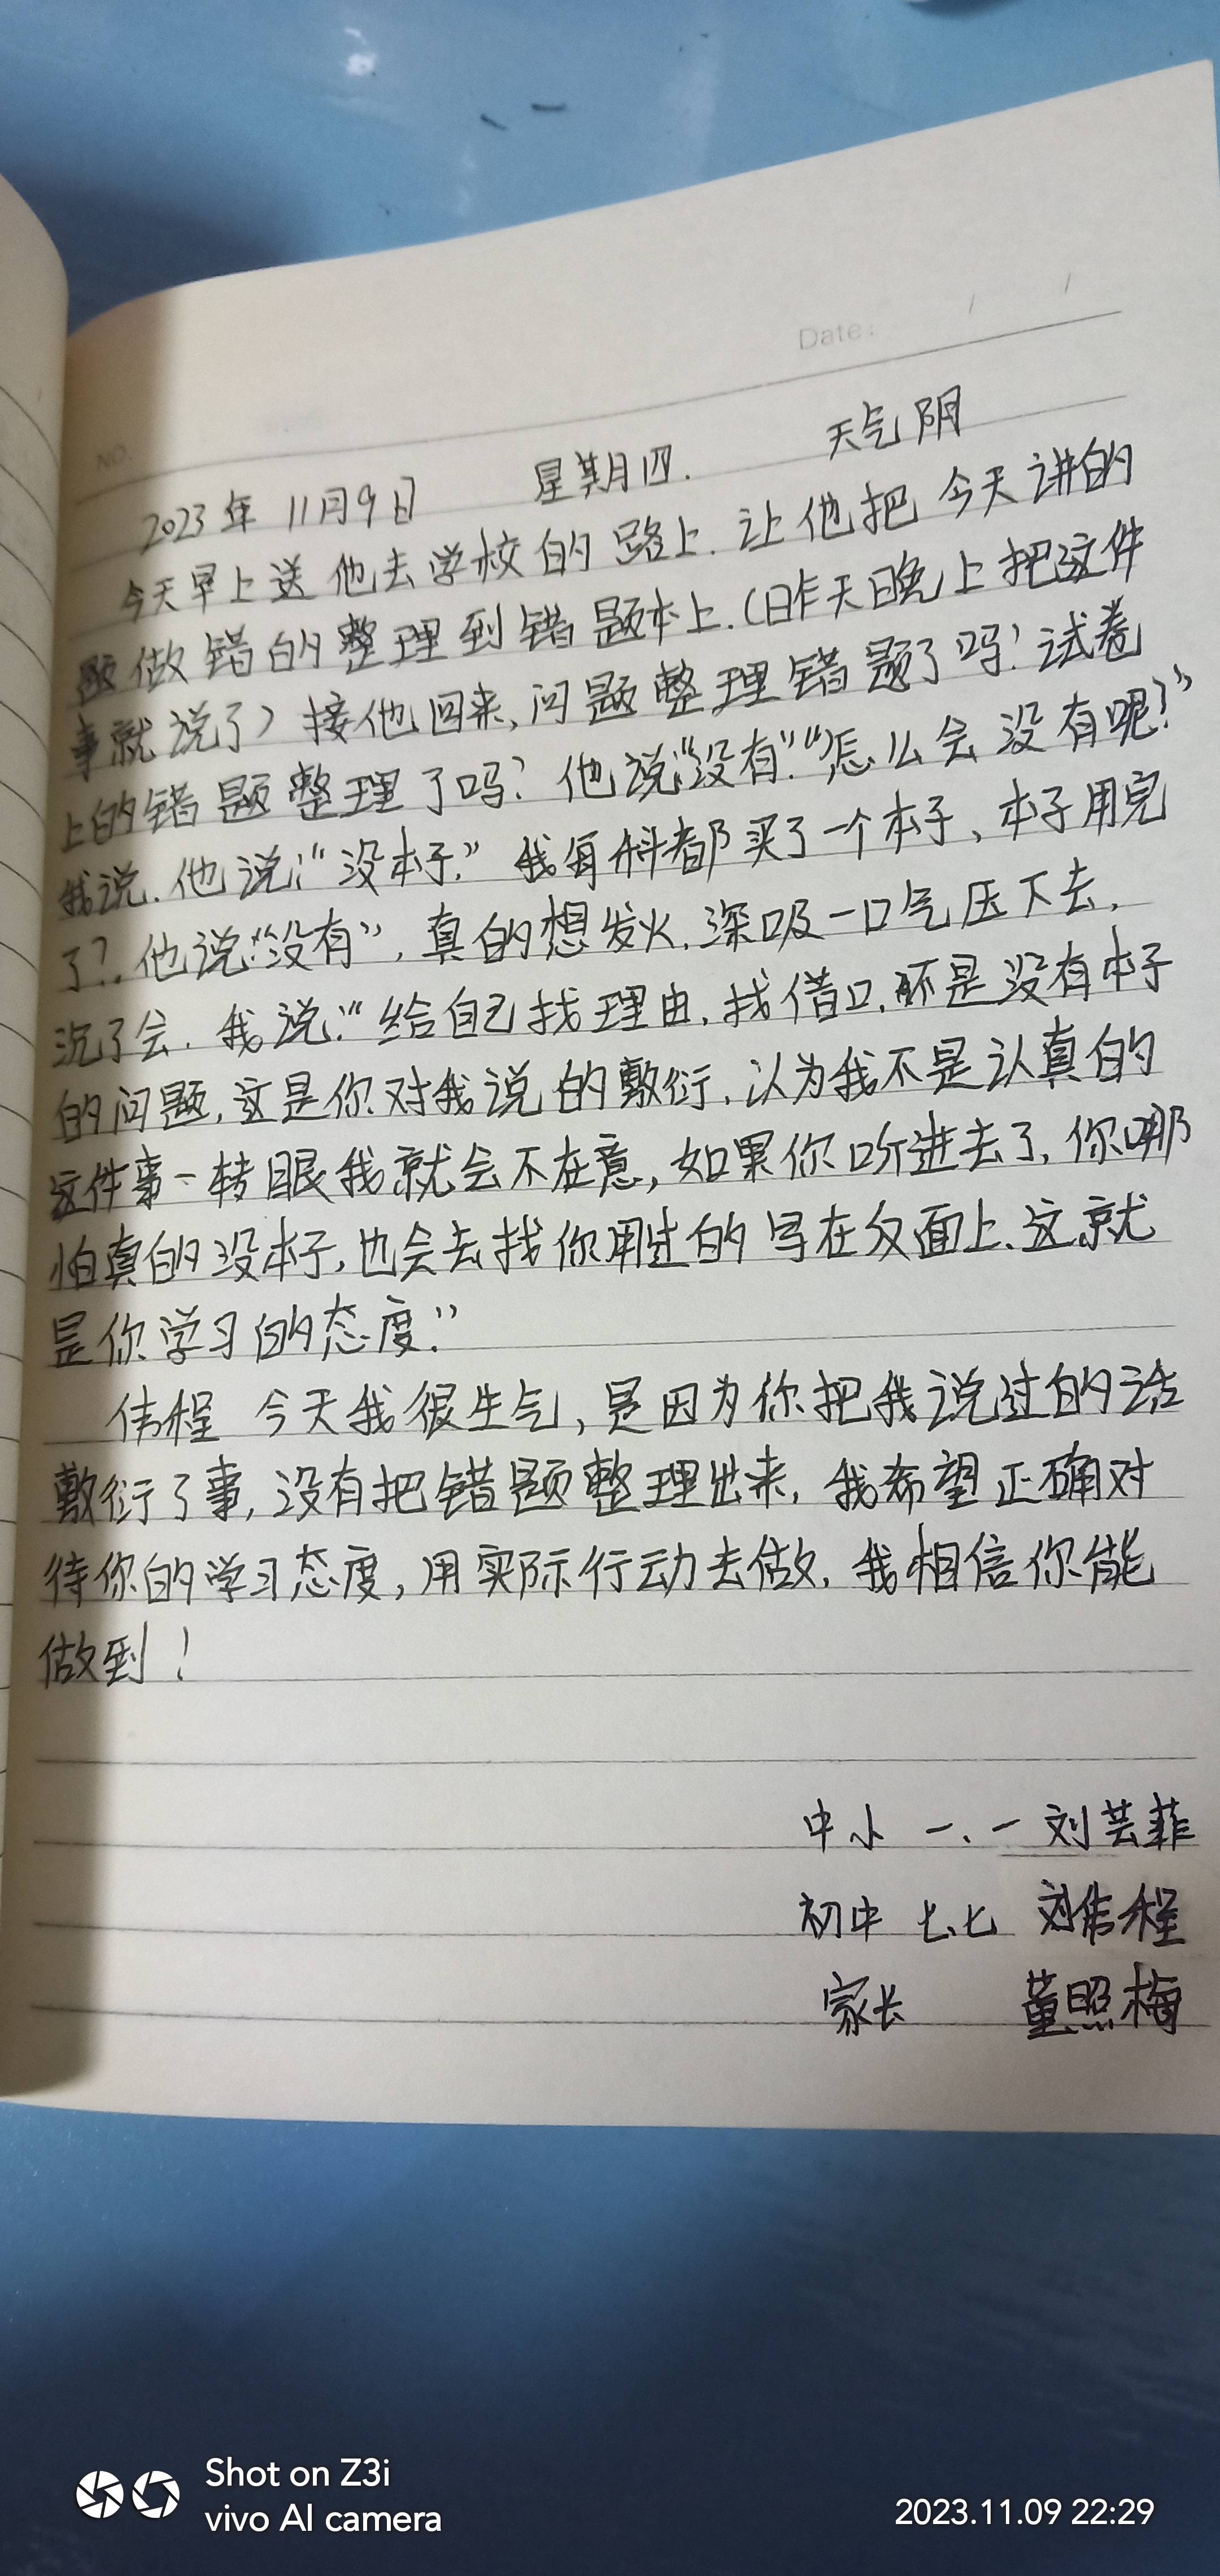 Date: / /
NO.
2023年 11月9日 星期四. 天气阴
今天早上送他去学校的路上.让他把今天讲的
题做错的整理到错题本上.(昨天晚上把这件
事就说了)接他回来,问题整理错题了吗?试卷
上的错题整理了吗?他说:“没有”.“怎么会没有呢?”
我说.他说:“没本子.”我每科都买了一个本子、本子用完
了?.他说:“没有”,真的想发火.深吸一口气压下去.
沉了会.我说:“给自己找理由.找借口.不是没有本子
的问题,这是你对我说的敷衍.以为我不是认真的
这件事一转眼我就会不在意,如果你听进去了,你哪
怕真的没本子,也会去找你用过的写在反面上.这就
是你学习的态度.”
伟程 今天我很生气,是因为你把我说过的话
敷衍了事,没有把错题整理出来,我希望正确对
待你的学习态度,用实际行动去做.我相信你能
做到!
中小 一.一 刘芸菲
初中 七.七 刘伟程
家长 董照梅
Shot on Z3i
vivo AI camera
2023.11.09 22:29